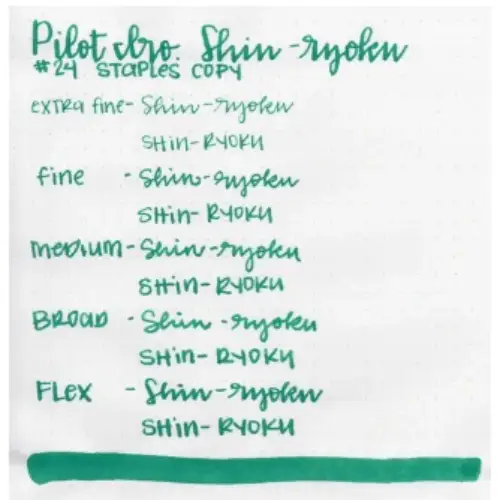 Pilot Iro. Shin-ryoku
#24 STAPLES COPY
EXTRA fine- Shin-ryoku
SHin-RYOKU
fine - Shin-ryoku
SHin-RYOKU
MEDIUM - Shin-ryoku
SHin-RYOKU
BROAD - Shin-ryoku
SHin-RYOKU
FLEX - Shin-ryoku
SHin-RYOKU